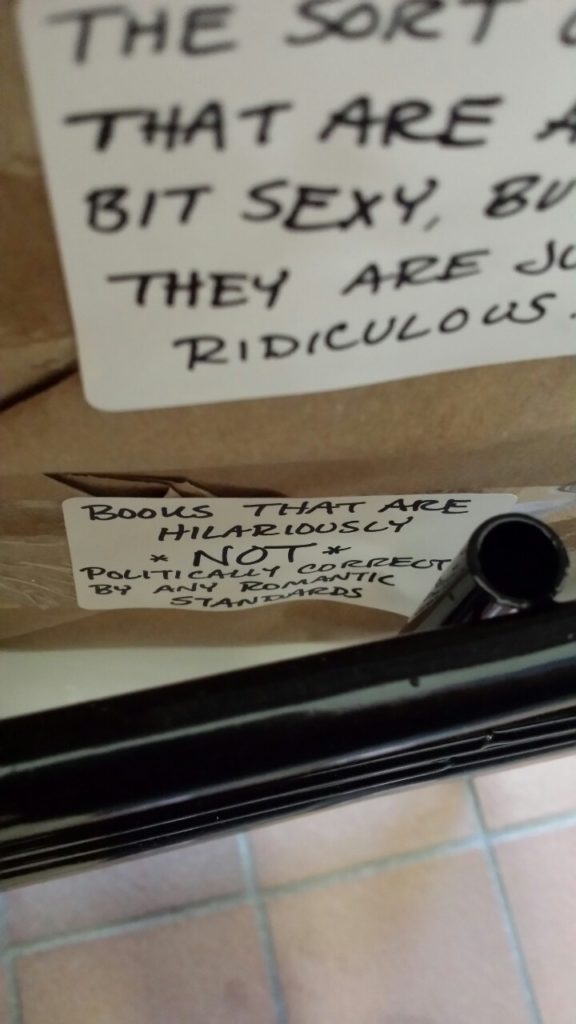 THE SORT
THAT ARE A
BIT SEXY, BU
THEY ARE JU
RIDICULOUS.
BOOKS THAT ARE
HILARIOUSLY
* NOT *
POLITICALLY CORRECT
BY ANY ROMANTIC
STANDARDS